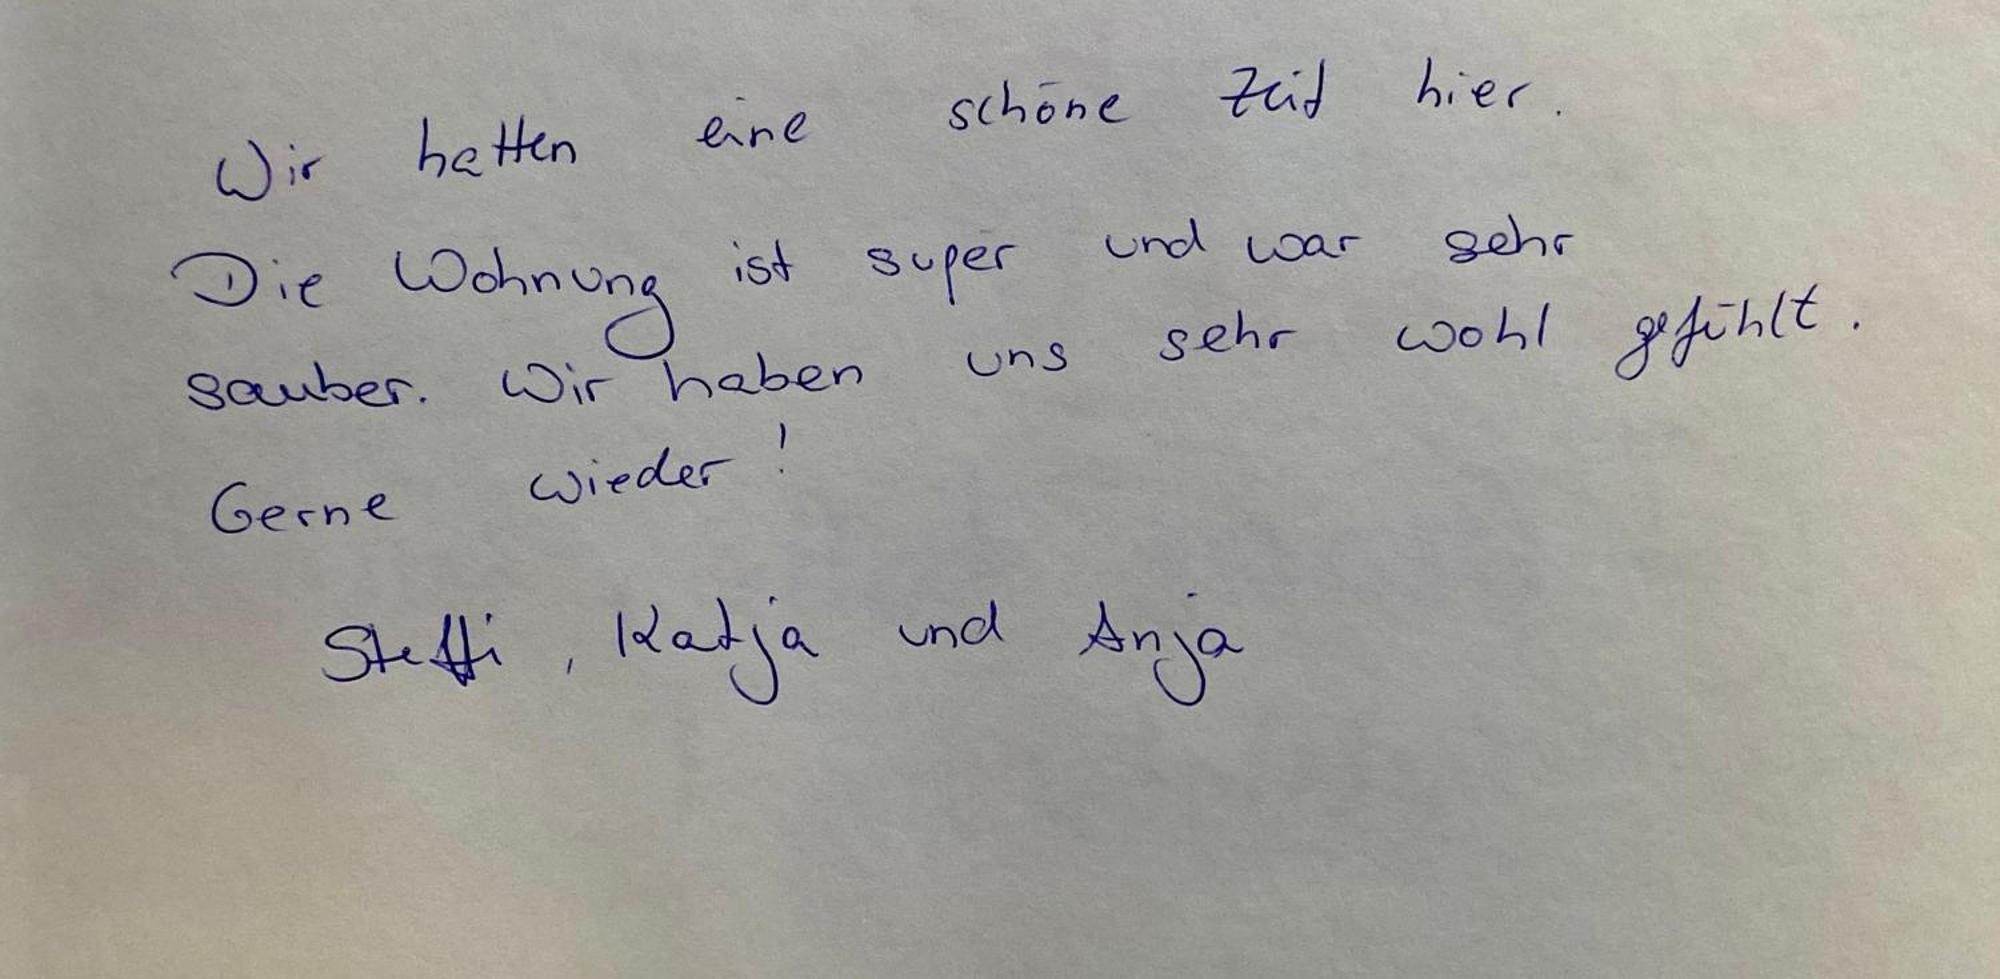 Wir hatten eine schöne Zeit hier.
Die Wohnung ist super und war sehr
sauber. Wir haben uns sehr wohl gefühlt.
Gerne wieder!
Steffi, Katja und Anja